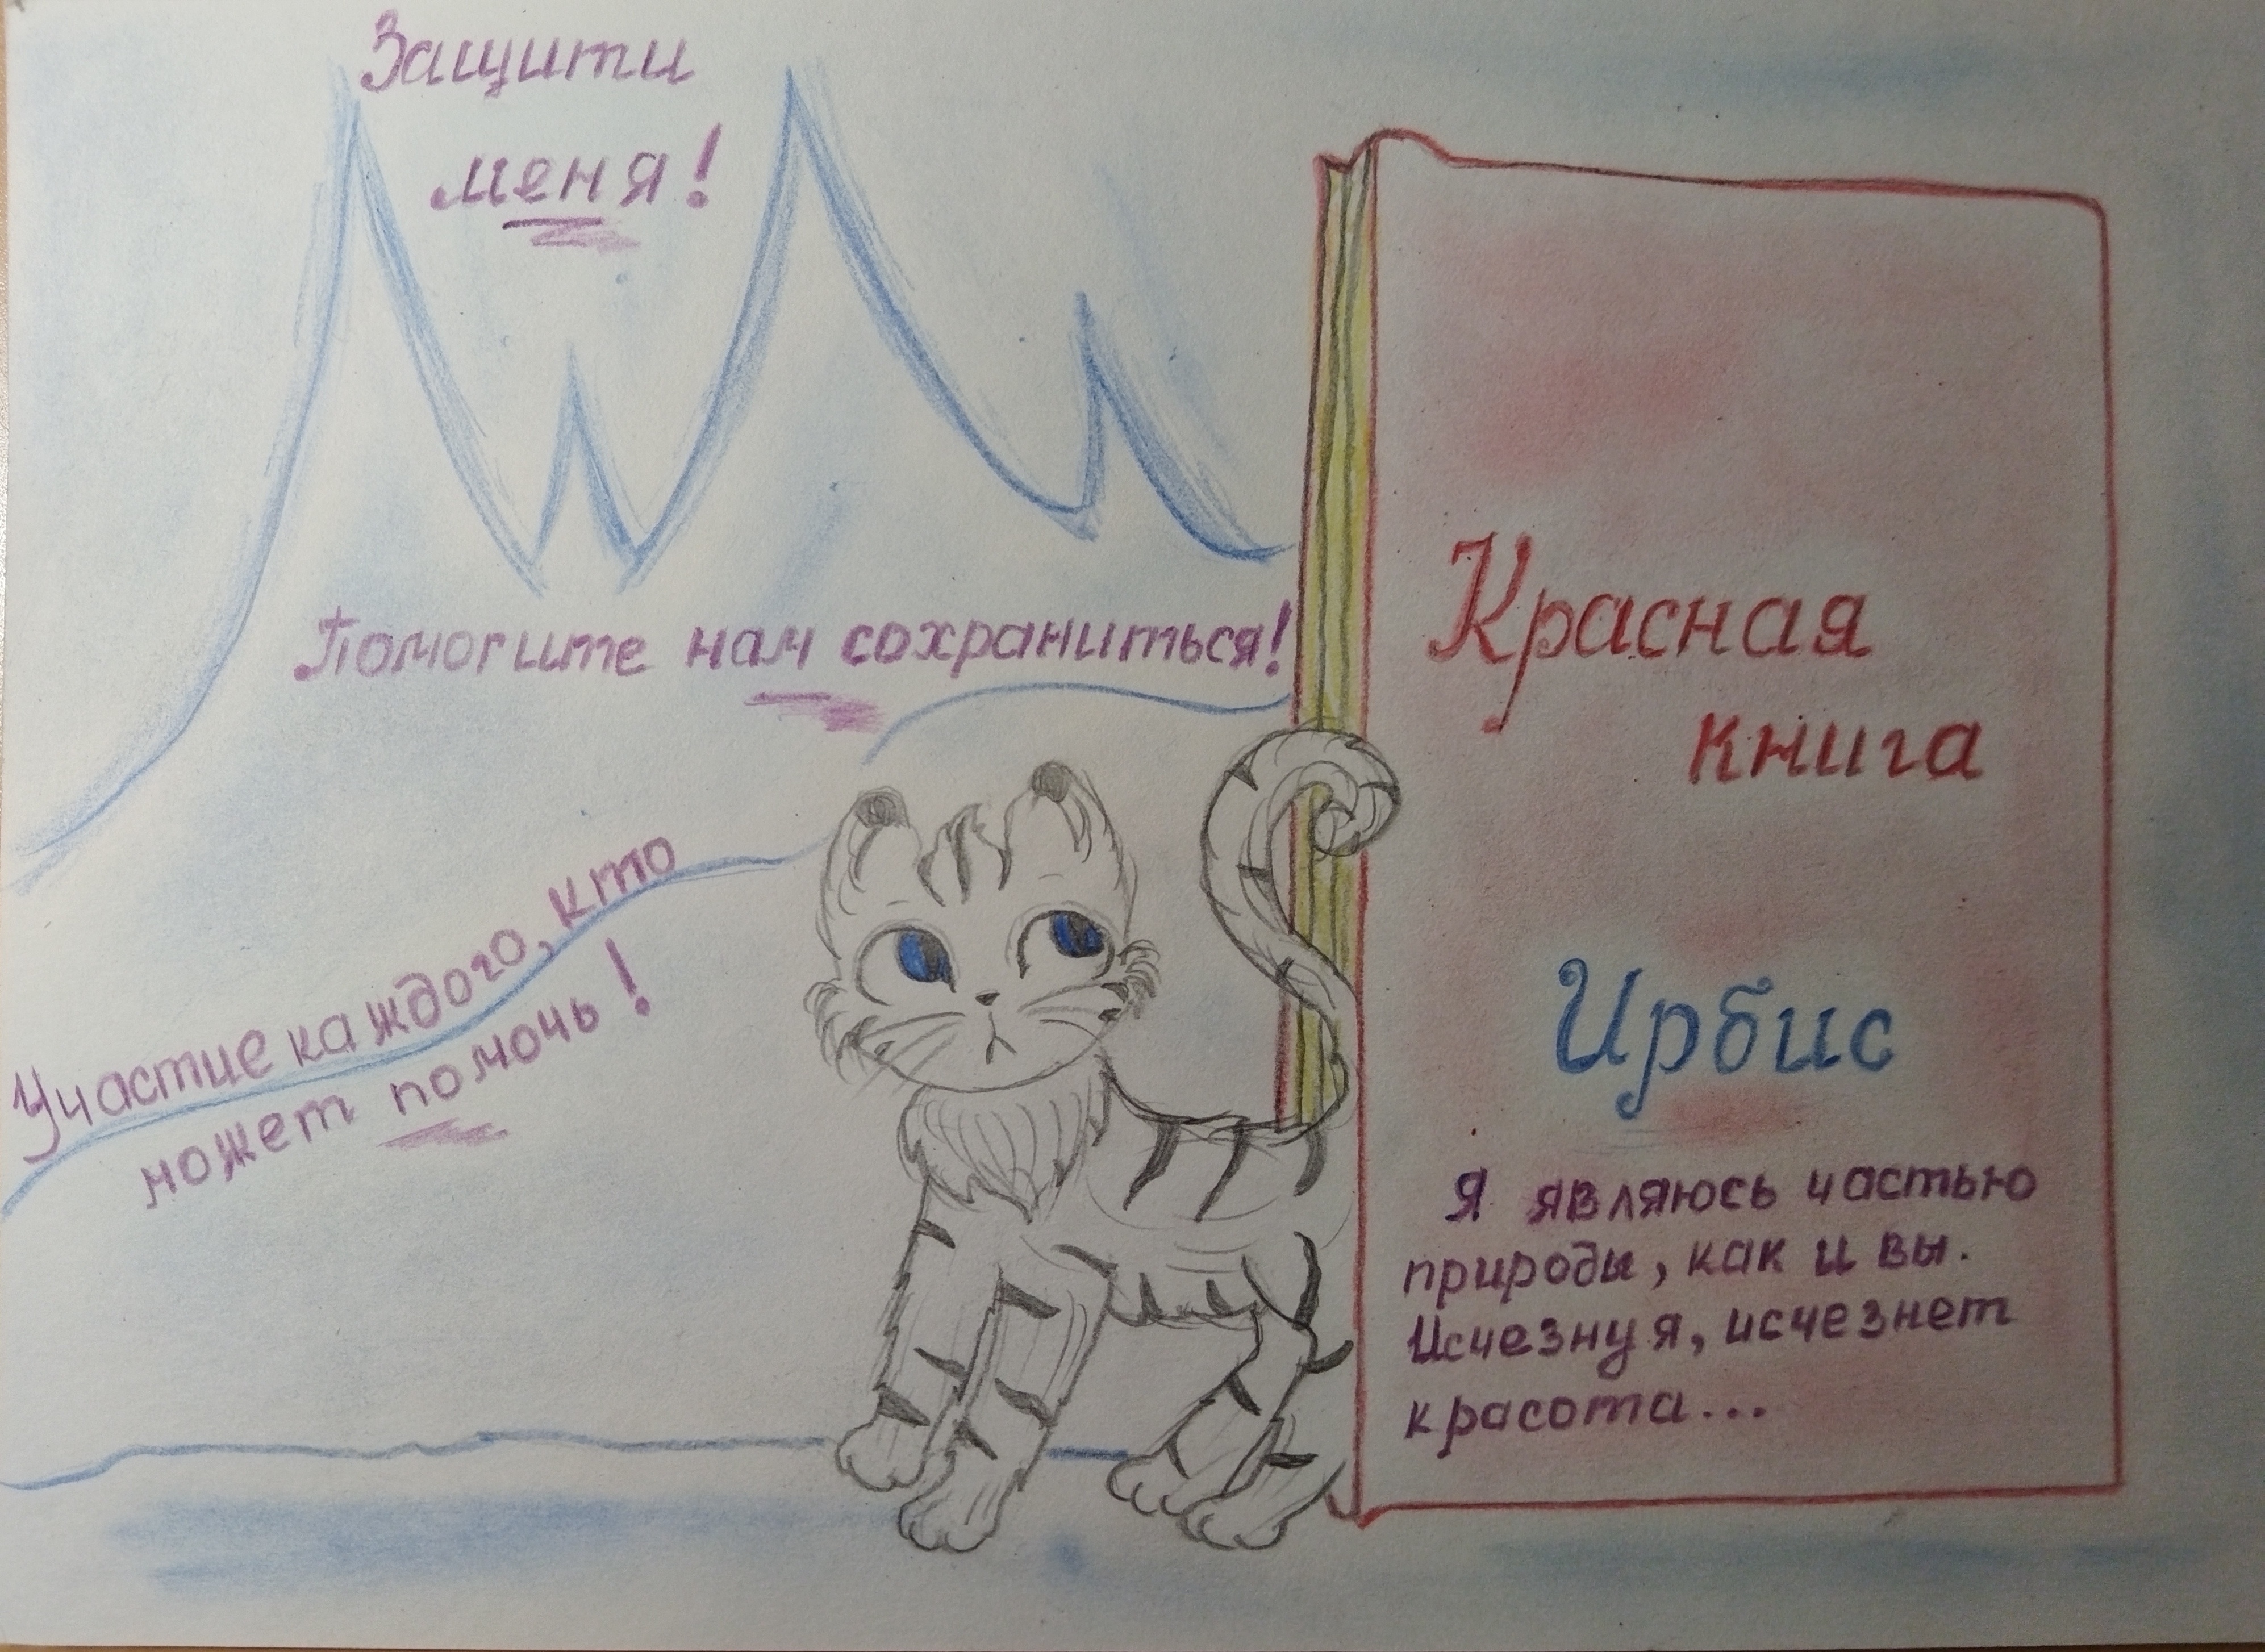 Защити
меня!
Помогите нам сохраниться!
Участие каждого, кто
может помочь!
Красная
книга
Ирбис
Я являюсь частью
природы, как и вы.
Исчезну я, исчезнет
красота...